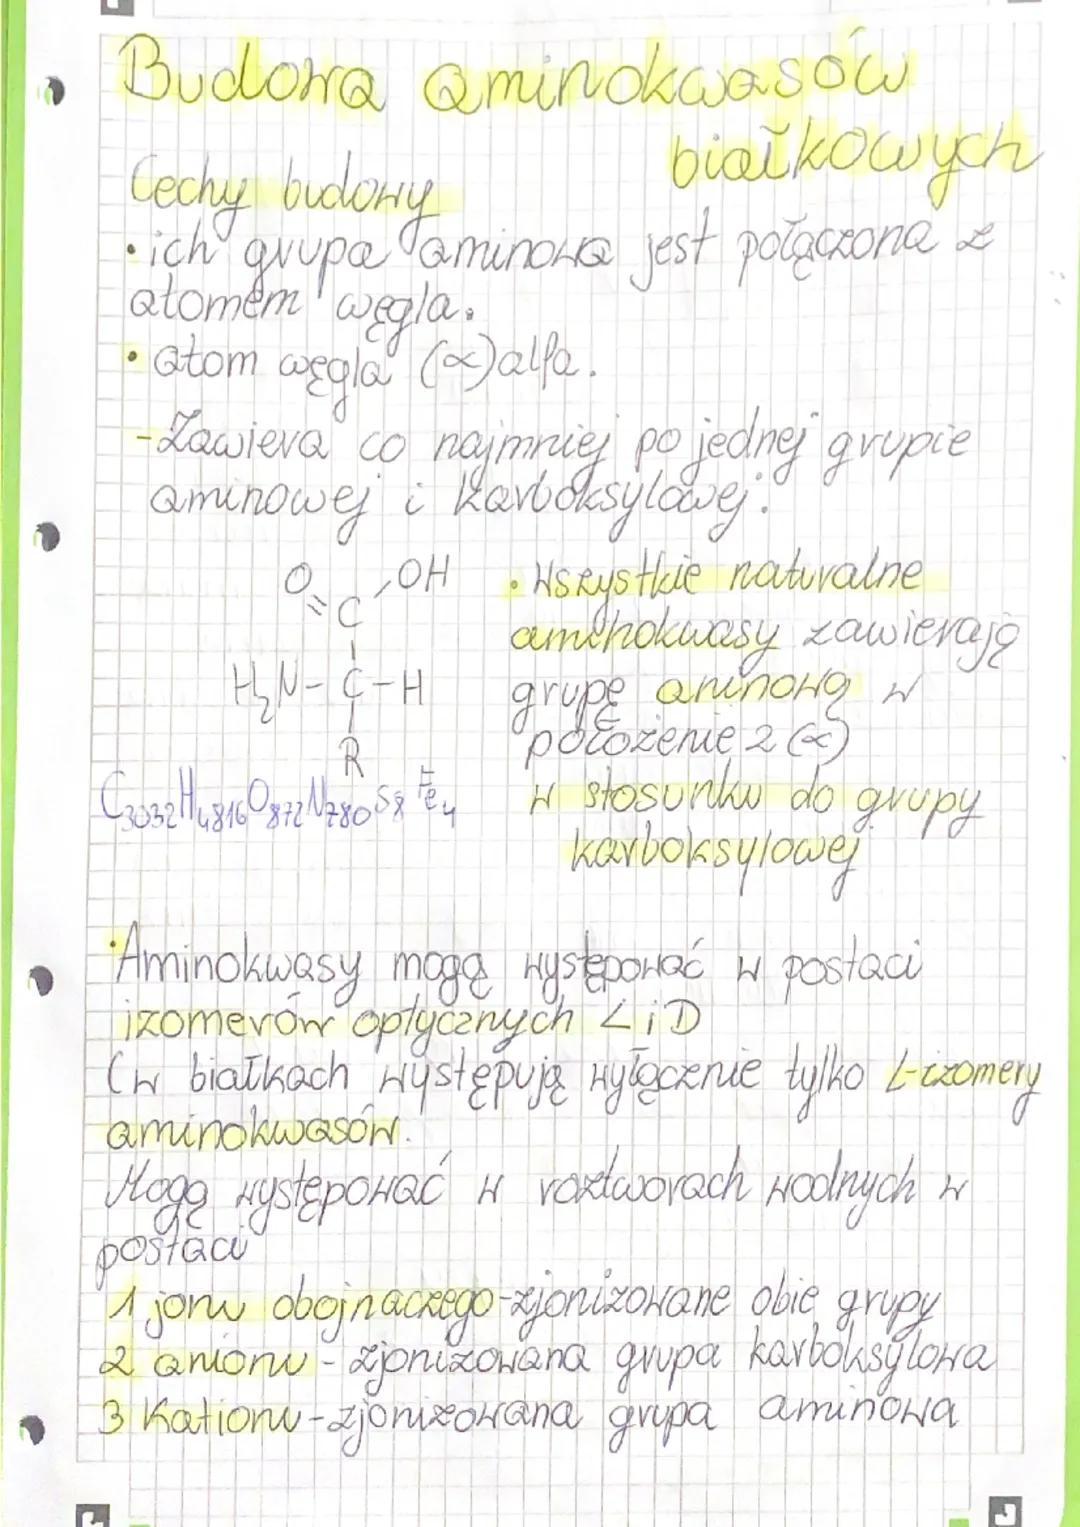 Budowa aminokwasów
białkowych
Cechy budowy
• ich grupa aminowa jest połączona z
atomem węgla.
• atom węgla (α) alfa.
- Zawiera co najmniej po jednej grupie
aminowej i karboksylowej.
O OH
=C
H₂N-C-H
R
C₃₀₃₂H₄₈₁₆O₈₇₂N₇₈₀S₈Fe₄
• Wszystkie naturalne
aminokwasy zawierają
grupę aminową w
położenie 2 (α)
w stosunku do grupy
karboksylowej
• Aminokwasy mogą występować w postaci
izomerów optycznych L i D
(w białkach występują wyłącznie tylko L-izomery
aminokwasów.
Mogą występować w roztworach wodnych w
postaci
1 jonu obojnaczego-zjonizowane obie grupy
2 anionu - zjonizowana grupa karboksylowa
3 Kationu-zjonizowana grupa aminowa